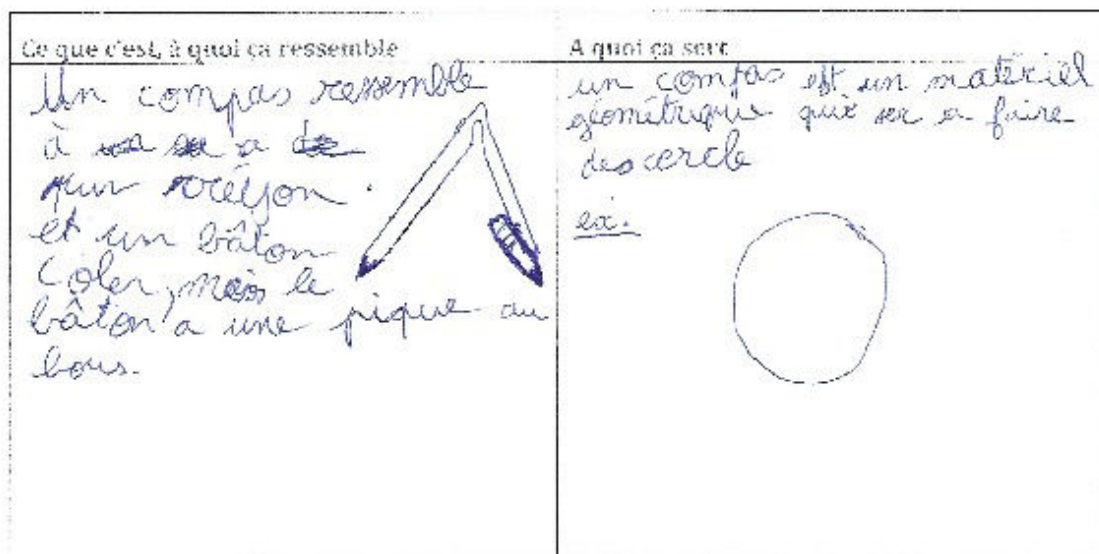 Ce que c'est, à quoi ça ressemble
Un compas ressemble
à a
un créyon
et un bâton
côler, mais le
bâton a une pique au
bous.
A quoi ça sert
un compas est un matériel
géométrique qui ser a faire
des cercle
ex.